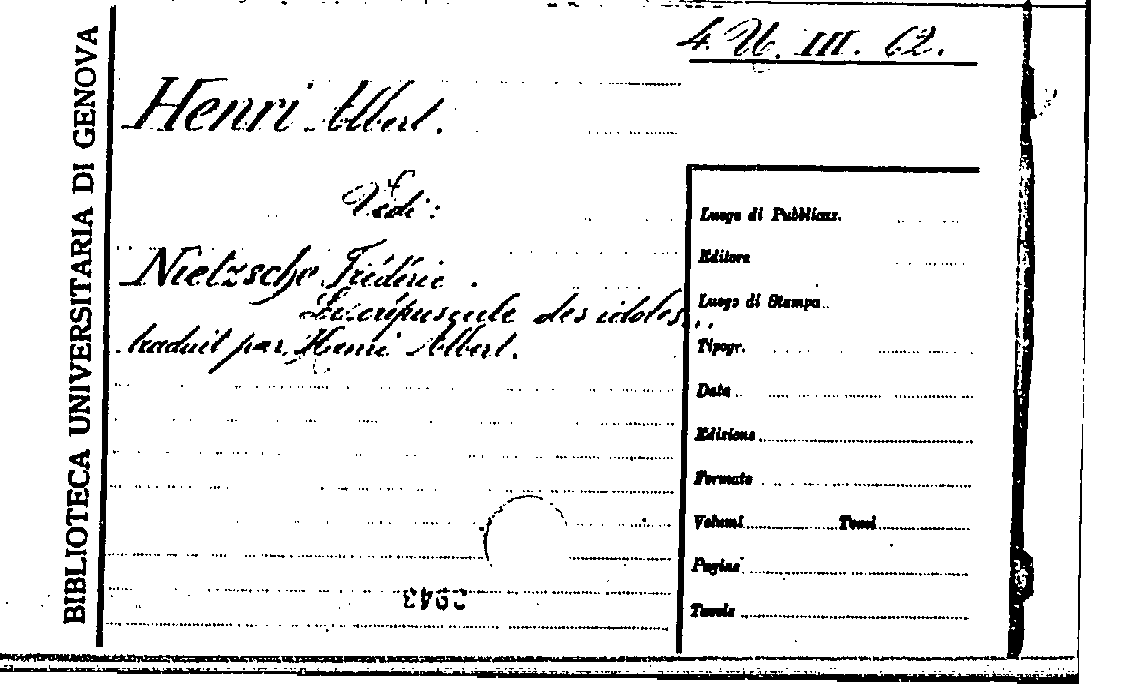 BIBLIOTECA UNIVERSITARIA DI GENOVA
4. U. III. 62.
Henri Albert.
Vedi:
Nietzsche Frédéric.
Le crépuscule des idoles...
traduit par Henri Albert.
Luogo di Pubblicaz.
Editore
Luogo di Stampa
Tipogr.
Data
Edizione
Formato
Volumi Tomi
Pagine
Tavole
2943